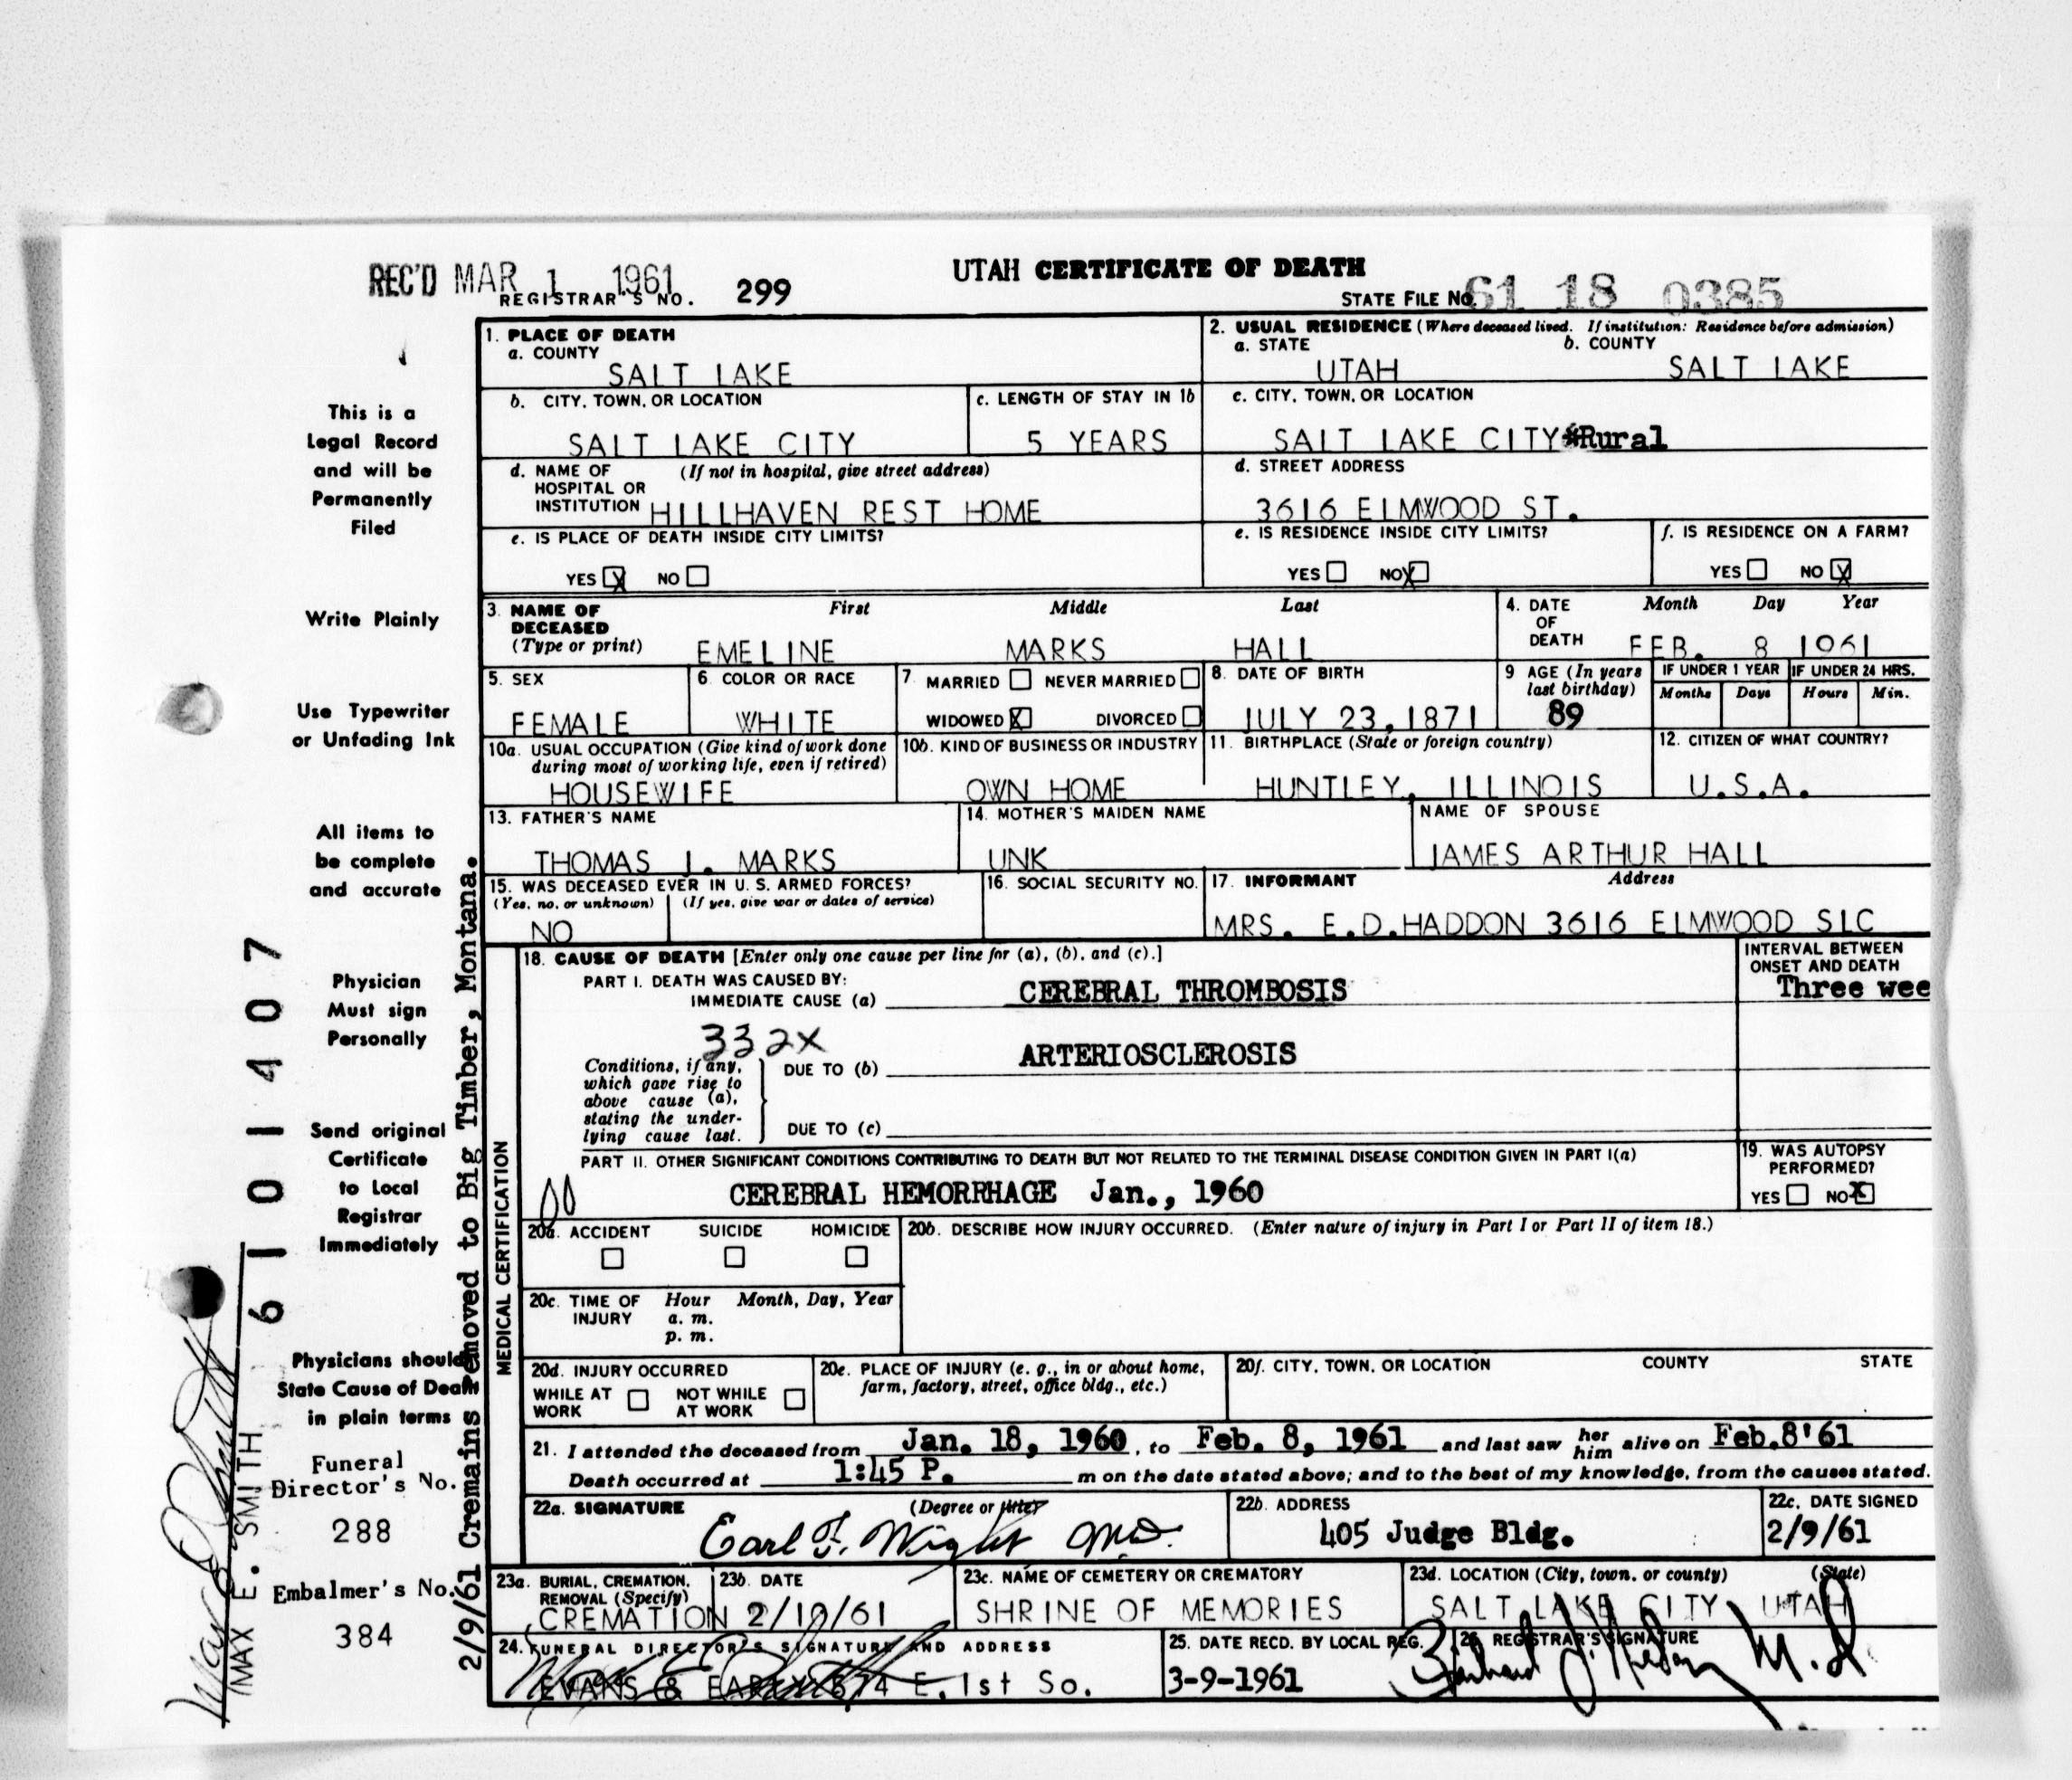 UTAH CERTIFICATE OF DEATH
REC'D MAR 1 1961
REGISTRAR'S NO. 299
STATE FILE NO. 61 18 0385
1. PLACE OF DEATH
a. COUNTY
SALT LAKE
2. USUAL RESIDENCE (Where deceased lived. If institution: Residence before admission)
a. STATE b. COUNTY
UTAH SALT LAKE
b. CITY, TOWN, OR LOCATION
SALT LAKE CITY
c. LENGTH OF STAY IN 1b
5 YEARS
c. CITY, TOWN, OR LOCATION
SALT LAKE CITY *Rural
d. NAME OF HOSPITAL OR INSTITUTION (If not in hospital, give street address)
HILLHAVEN REST HOME
d. STREET ADDRESS
3616 ELMWOOD ST.
e. IS PLACE OF DEATH INSIDE CITY LIMITS?
YES X NO
e. IS RESIDENCE INSIDE CITY LIMITS?
YES NO X
f. IS RESIDENCE ON A FARM?
YES NO X
3. NAME OF DECEASED (Type or print)
First Middle Last
EMELINE MARKS HALL
4. DATE OF DEATH
Month Day Year
FEB. 8 1961
5. SEX
FEMALE
6. COLOR OR RACE
WHITE
7. MARRIED NEVER MARRIED
WIDOWED X DIVORCED
8. DATE OF BIRTH
JULY 23, 1871
9 AGE (In years last birthday)
89
IF UNDER 1 YEAR
Months Days
IF UNDER 24 HRS.
Hours Min.
10a. USUAL OCCUPATION (Give kind of work done during most of working life, even if retired)
HOUSEWIFE
10b. KIND OF BUSINESS OR INDUSTRY
OWN HOME
11. BIRTHPLACE (State or foreign country)
HUNTLEY, ILLINOIS
12. CITIZEN OF WHAT COUNTRY?
U.S.A.
13. FATHER'S NAME
THOMAS J. MARKS
14. MOTHER'S MAIDEN NAME
UNK
NAME OF SPOUSE
JAMES ARTHUR HALL
15. WAS DECEASED EVER IN U. S. ARMED FORCES?
(Yes, no, or unknown) (If yes, give war or dates of service)
NO
16. SOCIAL SECURITY NO.
17. INFORMANT Address
MRS. E.D. HADDON 3616 ELMWOOD SLC
MEDICAL CERTIFICATION
18. CAUSE OF DEATH [Enter only one cause per line for (a), (b), and (c).]
PART I. DEATH WAS CAUSED BY:
IMMEDIATE CAUSE (a) CEREBRAL THROMBOSIS
INTERVAL BETWEEN ONSET AND DEATH
Three wee
332x
Conditions, if any, which gave rise to above cause (a), stating the underlying cause last.
DUE TO (b) ARTERIOSCLEROSIS
DUE TO (c)
PART II. OTHER SIGNIFICANT CONDITIONS CONTRIBUTING TO DEATH BUT NOT RELATED TO THE TERMINAL DISEASE CONDITION GIVEN IN PART I(a)
CEREBRAL HEMORRHAGE Jan., 1960
19. WAS AUTOPSY PERFORMED?
YES NO X
20a. ACCIDENT SUICIDE HOMICIDE
20b. DESCRIBE HOW INJURY OCCURRED. (Enter nature of injury in Part I or Part II of item 18.)
20c. TIME OF INJURY
Hour Month, Day, Year
a. m.
p. m.
20d. INJURY OCCURRED
WHILE AT WORK NOT WHILE AT WORK
20e. PLACE OF INJURY (e. g., in or about home, farm, factory, street, office bldg., etc.)
20f. CITY, TOWN, OR LOCATION COUNTY STATE
21. I attended the deceased from Jan. 18, 1960, to Feb. 8, 1961 and last saw her him alive on Feb.8'61
Death occurred at 1:45 P. m on the date stated above; and to the best of my knowledge, from the causes stated.
22a. SIGNATURE (Degree or title)
Earl F. Wight MD.
22b. ADDRESS
405 Judge Bldg.
22c. DATE SIGNED
2/9/61
23a. BURIAL, CREMATION, REMOVAL (Specify)
CREMATION
23b. DATE
2/10/61
23c. NAME OF CEMETERY OR CREMATORY
SHRINE OF MEMORIES
23d. LOCATION (City, town, or county) (State)
SALT LAKE CITY, UTAH
24. FUNERAL DIRECTOR'S SIGNATURE AND ADDRESS
EVANS & EARLY 574 E. 1st So.
25. DATE RECD. BY LOCAL REG.
3-9-1961
26. REGISTRAR'S SIGNATURE
M.D.
This is a
Legal Record
and will be
Permanently
Filed
Write Plainly
Use Typewriter
or Unfading Ink
All items to
be complete
and accurate
Physician
Must sign
Personally
Send original
Certificate
to Local
Registrar
Immediately
Physicians should
State Cause of Death
in plain terms
Funeral
Director's No.
288
Embalmer's No.
384
2/9/61 Cremains removed to Big Timber, Montana.
6101407
Max E Smith
(MAX E. SMITH